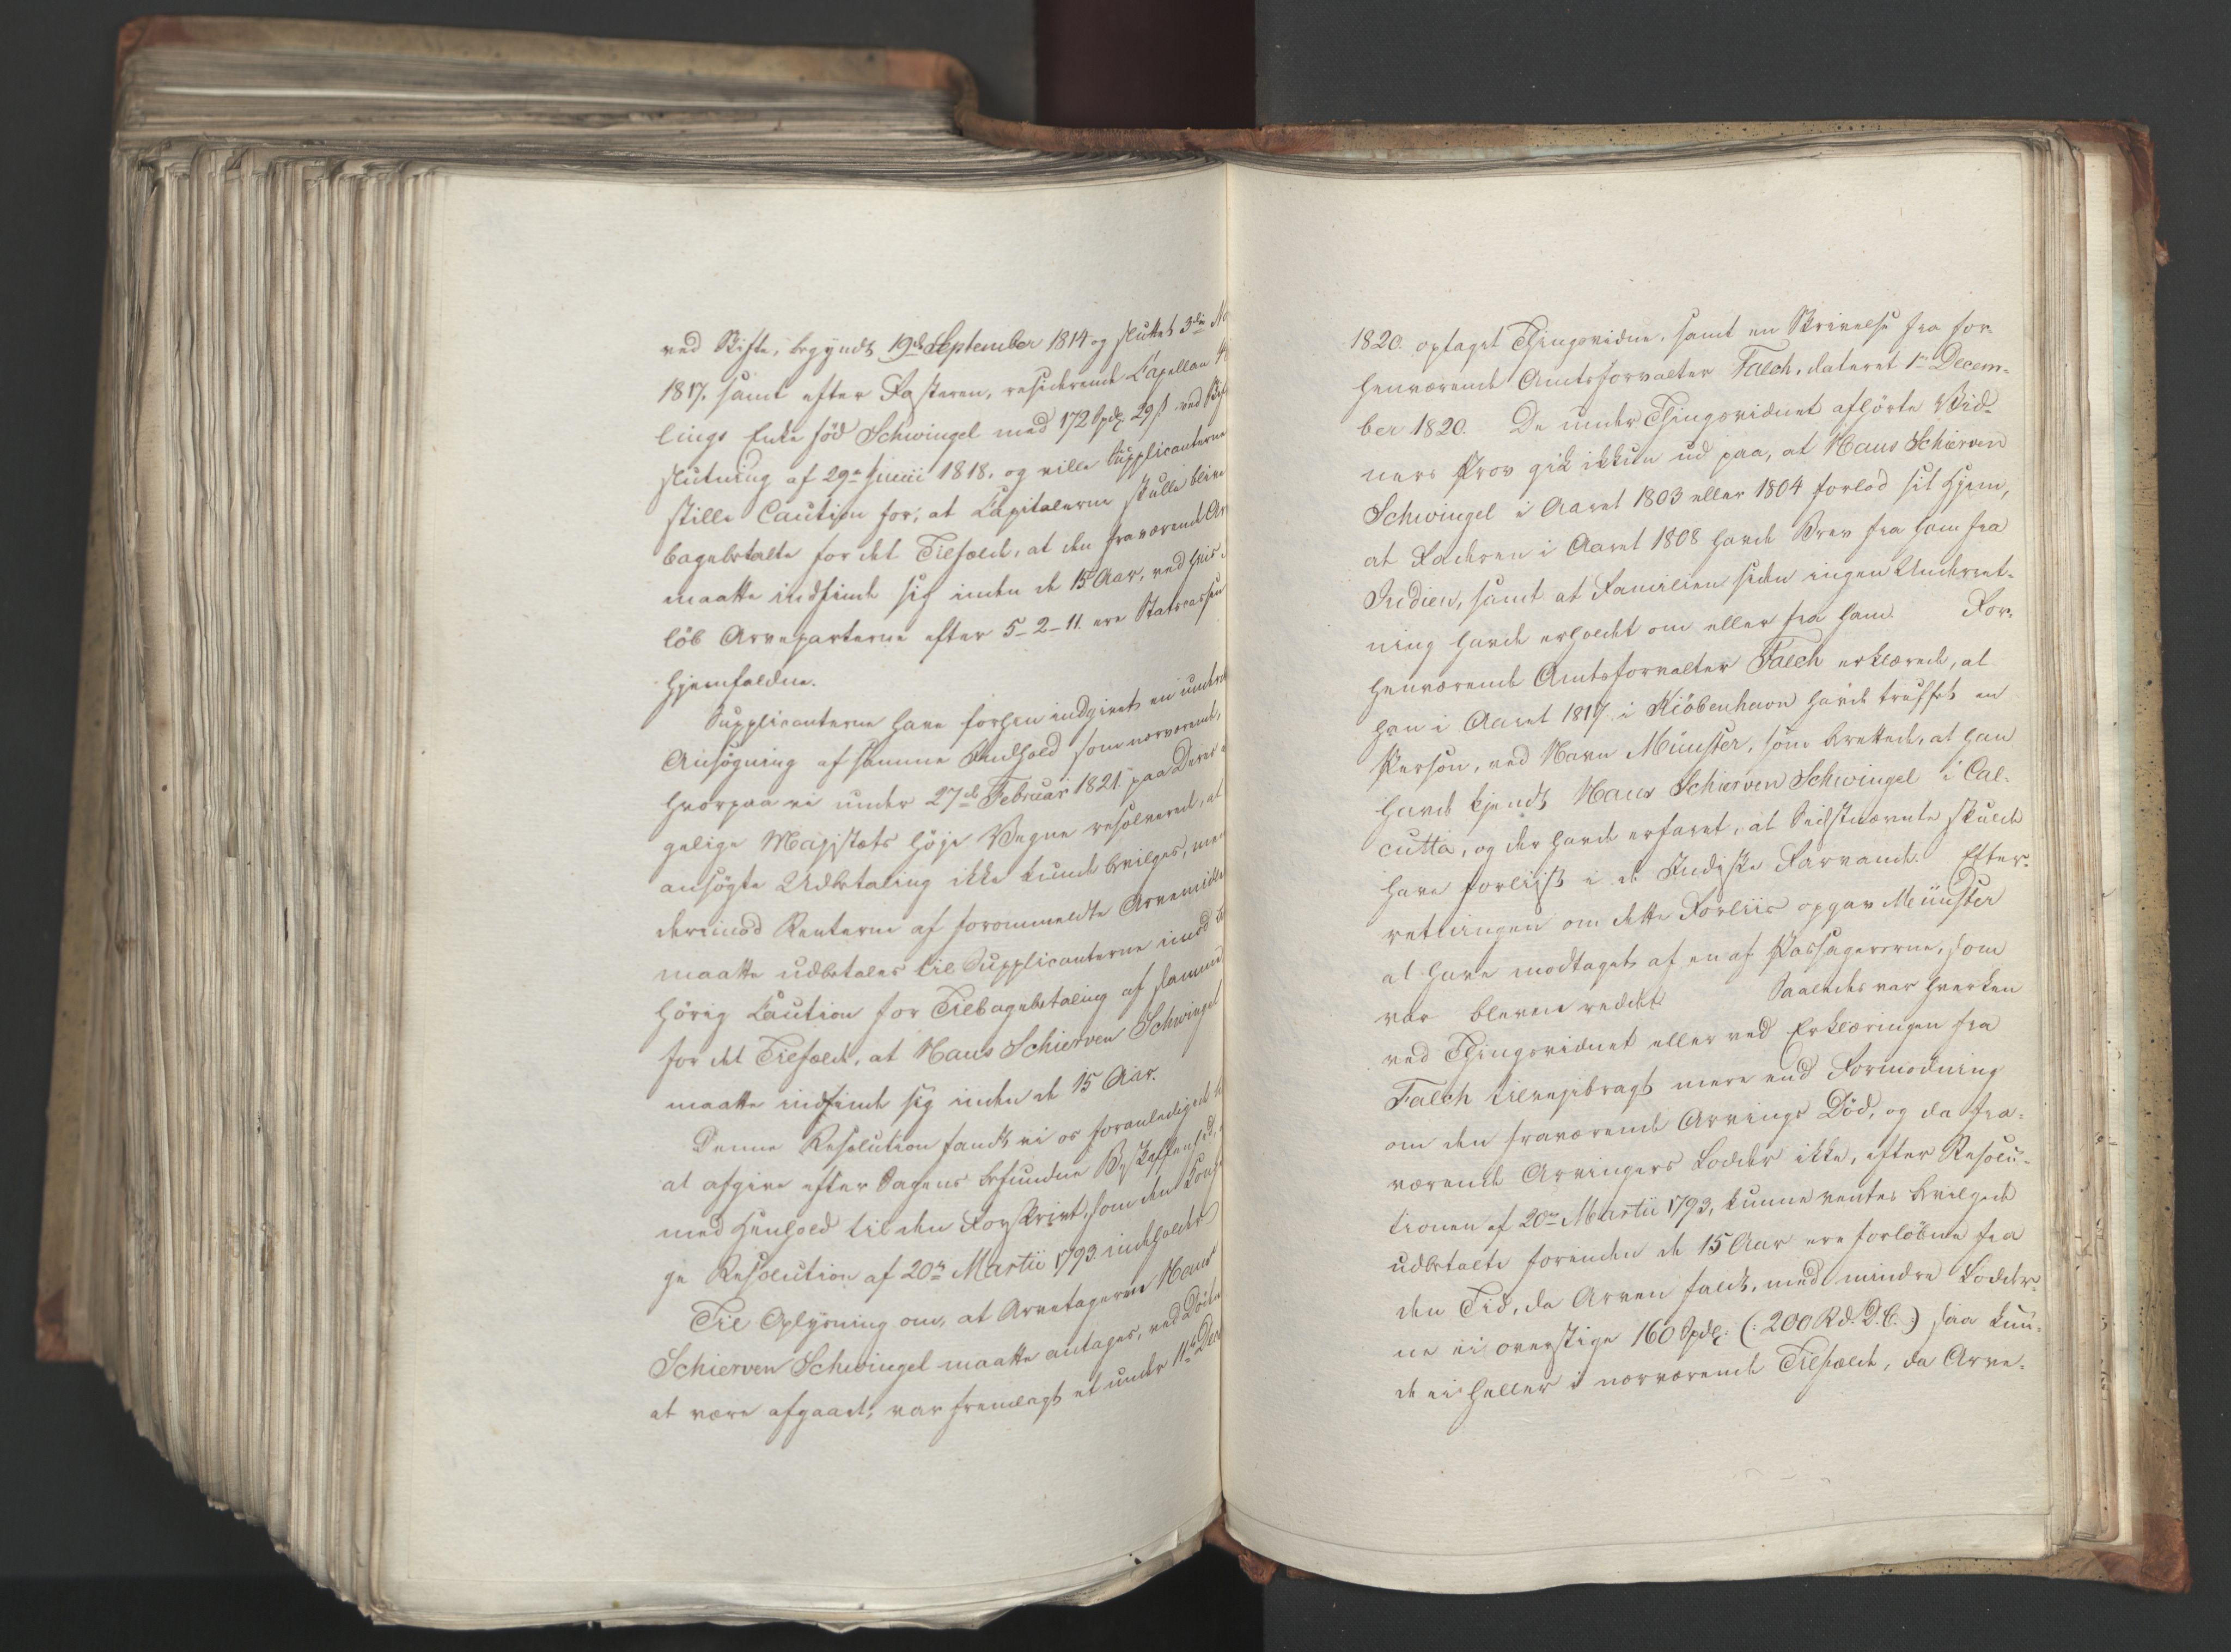 ved Skifte, begyndt 19de September 1814 og sluttet 3die No
1817. samt efter Fasteren, residerende Capellan
lings Enke fød Schwingel med 172 Spdlr 29 s ved Skif
slutning af 29de Junii 1818. og ville Supplicanterne
stille Caution for, at Capitalerne skulle blive
bagebetalte for det Tilfælde, at den fraværende Ar
maatte indfinde sig inden de 15 Aar, ved hvis
løb Arveparterne efter 5-2-11. ere Statscassen
hjemfaldne.
Supplicanterne have forhen indgivet en underd
Ansøgning af samme Indhold som nærværende,
hvorpaa vi under 27de Februar 1821. paa Deres
gelige Majestæts høje Vegne resolverede, at
ansøgte Udbetaling ikke kunde bevilges, men
derimod Renterne af forommeldte Arvemidle
maatte udbetales til Supplicanterne imod be
hørig Caution for Tilbagebetaling af samme
for det Tilfælde, at Hans Schierven Schwingel
maatte indfinde sig inden de 15 Aar.
Denne Resolution fandt vi os foranledigede
at afgive efter Sagens befundne Beskaffenhed,
med Henhold til den Forskrivt, som den Konge
ge Resolution af 20de Martii 1793. indeholder
Til Oplysning om, at Arvetageren Hans
Schierven Schwingel maatte antages, ved Døden
at være afgaaet, var fremlagt et under 11te Dec
1820. optaget Thingsvidne, samt en Skrivelse fra for-
henværende Amtsforvalter Falch, dateret 1ste Decem-
ber 1820. De under Thingsvidnet afhørte Vid-
ners Prov gik ikkun ud paa, at Hans Schierven
Schwingel i Aaret 1803 eller 1804 forlod sit Hjem,
at Faderen i Aaret 1808 havde Brev fra ham fra
Indien, samt at Familien siden ingen Underret-
ning havde erholdt om eller fra ham. For-
henværende Amtsforvalter Falch erklærede, at
han i Aaret 1817 i Kiöbenhavn havde truffet en
Person, ved Navn Münster, som berettede, at han
havde kjendt Hans Schierven Schwingel i Cal-
cutta, og der havde erfaret, at Sidstnævnte skulde
have forliist i de Indiske Farvande. Efter-
retningen om dette Forliis opgav Münster
at have modtaget af en af Passagererne, som
var bleven reddet. Saaledes var hverken
ved Thingsvidnet eller ved Erklæringen fra
Falch tilvejebragt mere end Formodning
om den fraværende Arvings Død, og da fra-
værende Arvingers Lodder ikke, efter Resolu-
tionen af 20de Martii 1793, kunne ventes bevilgede
udbetalte forinden de 15 Aar ere forløbne fra
den Tid, da Arven faldt, med mindre Lodder-
ne ei overstige 160 Spdlr: (: 200 Rd. D. C. :) saa kun-
de ei heller i nærværende Tilfælde, da Arve-